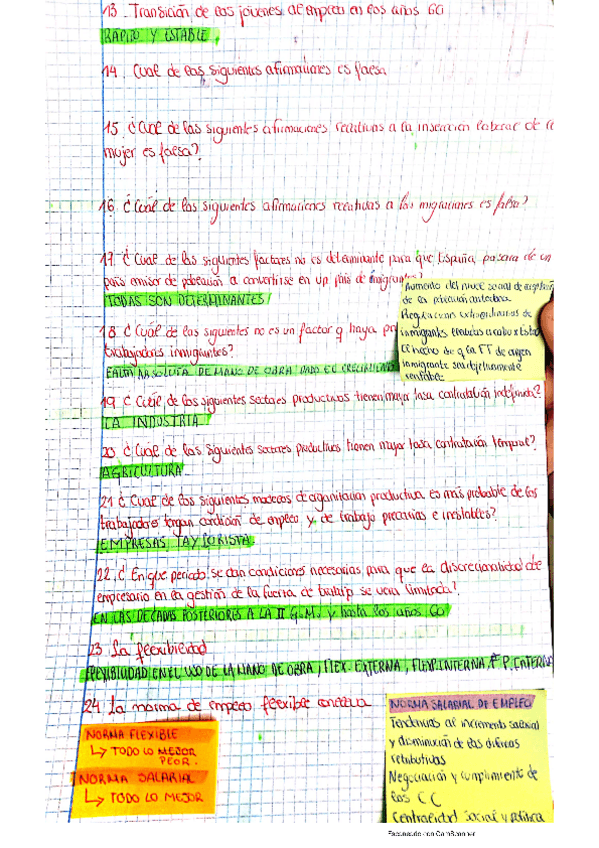 13. Transición de los jóvenes al empleo en los años 60
RÁPIDO Y ESTABLE
14. Cual de las siguientes afirmaciones es falsa
15. ¿Cuál de las siguientes afirmaciones relativas a la inserción laboral de la
mujer es falsa?
16 ¿Cuál de las siguientes afirmaciones relativas a las migraciones es falsa?
17. ¿Cual de los siguientes factores no es determinante para que España pasara de un
país emisor de población a convertirse en un país de inmigrantes?
TODAS SON DETERMINANTES!
Aumento del nivel social de
de la población autóctona
Regularizaciones extraordinarias de
inmigrantes
El hecho de q la FT de origen
inmigrante sea
rentable
18. ¿Cuál de las siguientes no es un factor q haya
trabajadores inmigrantes?
FALTA ABSOLUTA DE MANO DE OBRA DADO EL CRECIMIENTO
19 ¿Cuál de los siguientes sectores productivos tienen mayor tasa contratación indefinida?
LA INDUSTRIA
20 ¿Cuál de los siguientes sectores productivos tienen mayor tasa contratación temporal?
AGRICULTURA
21 ¿Cual de los siguientes modelos de organización productiva es más probable de los
trabajadores tengan condición de empleo y de trabajo precarias e inestables?
EMPRESAS TAYLORISTA
22. ¿En que periodo se dan condiciones necesarias para que la discrecionalidad del
empresario en la gestión de la fuerza de trabajo se vea limitada?
EN LAS DECADAS POSTERIORES A LA II G.M. y hasta los años 60
23 La flexibilidad
FLEXIBILIDAD EN EL USO DE LA MANO DE OBRA, FLEX. EXTERNA, FLEXP. INTERNA,
24 La norma de empleo flexible conlleva
NORMA FLEXIBLE
↳ TODO LO MEJOR
PEOR.
NORMA SALARIAL
↳ TODO LO MEJOR
NORMA SALARIAL DE EMPLEO
Tendencias al incremento salarial
y disminución de las
retributivas
Negociación y cumplimiento de
los CC
Centralidad social y política
Escaneado con CamScanner